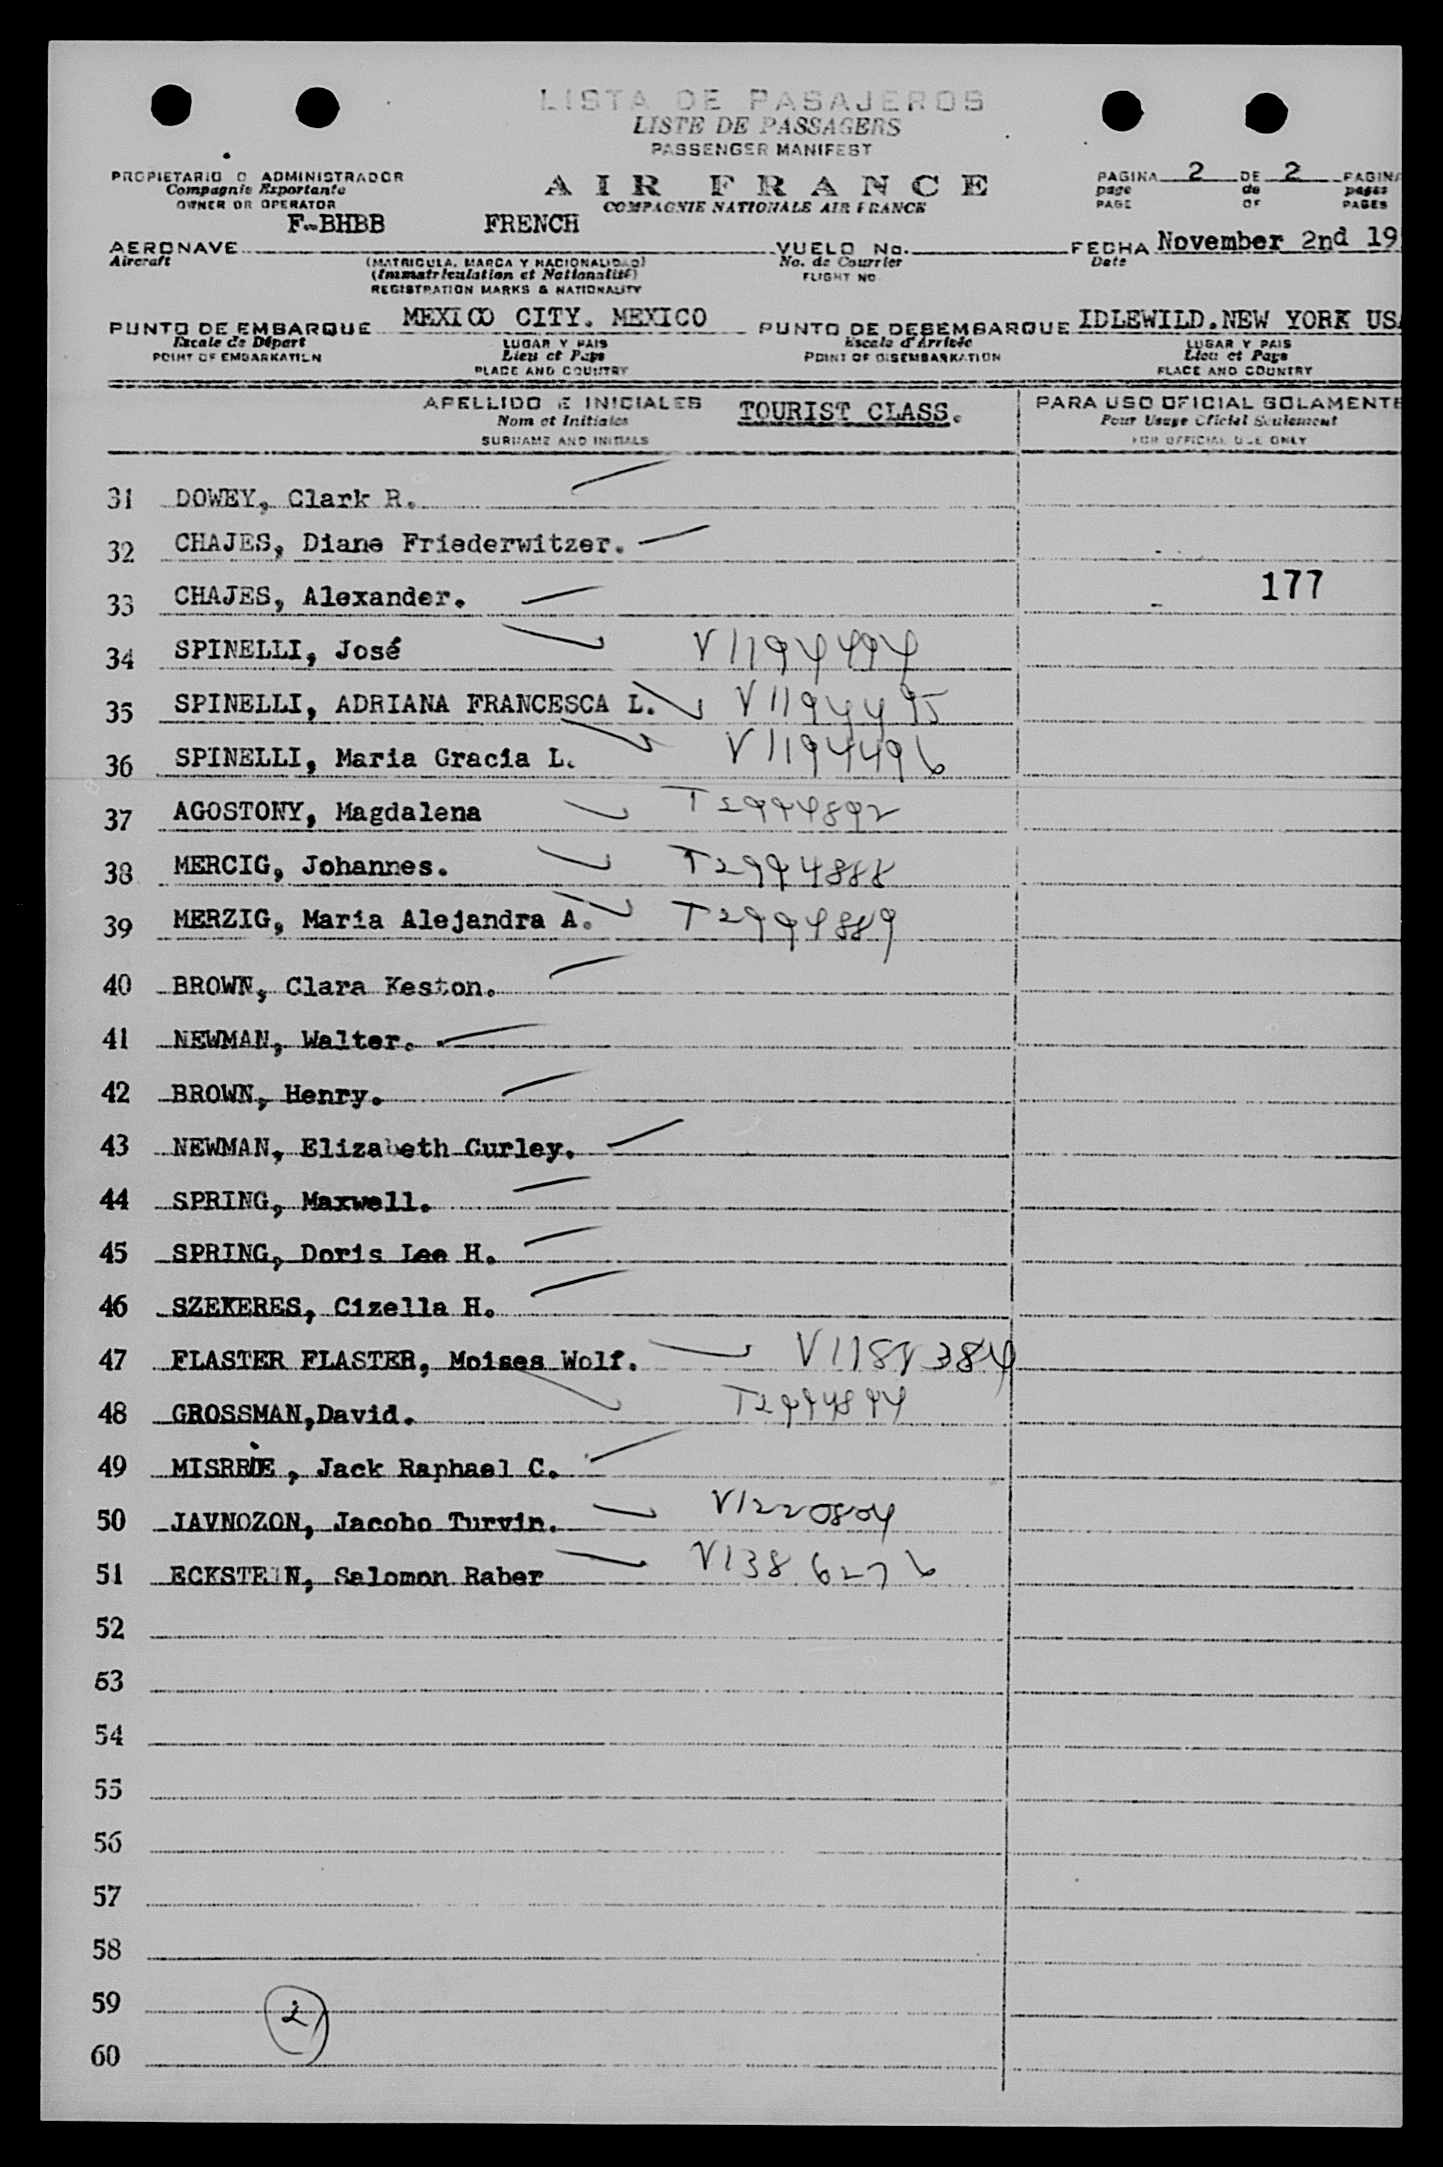 LISTA DE PASAJEROS
LISTE DE PASSAGERS
PASSENGER MANIFEST
PROPIETARIO O ADMINISTRADOR
Compagnie Exportante
OWNER OR OPERATOR
AIR FRANCE
COMPAGNIE NATIONALE AIR FRANCE
PAGINA 2 DE 2 PAGINA
page de pages
PAGE OF PAGES
AERONAVE F-BHBB FRENCH VUELO No. FECHA November 2nd 19
Aircraft (MATRICULA, MARCA Y NACIONALIDAD) No. de Courrier Date
(Immatriculation et Nationalité) FLIGHT NO
REGISTRATION MARKS & NATIONALITY
PUNTO DE EMBARQUE MEXICO CITY. MEXICO PUNTO DE DESEMBARQUE IDLEWILD.NEW YORK US
Escale de Départ LUGAR Y PAIS Escale d'Arrivée LUGAR Y PAIS
POINT OF EMBARKATION Lieu et Pays POINT OF DISEMBARKATION Lieu et Pays
PLACE AND COUNTRY PLACE AND COUNTRY
APELLIDO E INICIALES TOURIST CLASS. PARA USO OFICIAL SOLAMENTE
Nom et Initiales Pour Usage Oficiel Seulement
SURNAME AND INITIALS FOR OFFICIAL USE ONLY
31 DOWEY, Clark R.
32 CHAJES, Diane Friederwitzer.
33 CHAJES, Alexander. 177
34 SPINELLI, José V1194494
35 SPINELLI, ADRIANA FRANCESCA L. V1194495
36 SPINELLI, Maria Gracia L. V1194496
37 AGOSTONY, Magdalena T2994892
38 MERCIG, Johannes. T2994888
39 MERZIG, Maria Alejandra A. T2994889
40 BROWN, Clara Keston.
41 NEWMAN, Walter.
42 BROWN, Henry.
43 NEWMAN, Elizabeth Curley.
44 SPRING, Maxwell.
45 SPRING, Doris Lee H.
46 SZEKERES, Cizella H.
47 FLASTER FLASTER, Moises Wolf. V1188384
48 GROSSMAN,David. T2994894
49 MISRRIE, Jack Raphael C.
50 JAVNOZON, Jacobo Turvin. V1220804
51 ECKSTEIN, Salomon Raber V1386276
52
53
54
55
56
57
58
59
2
60